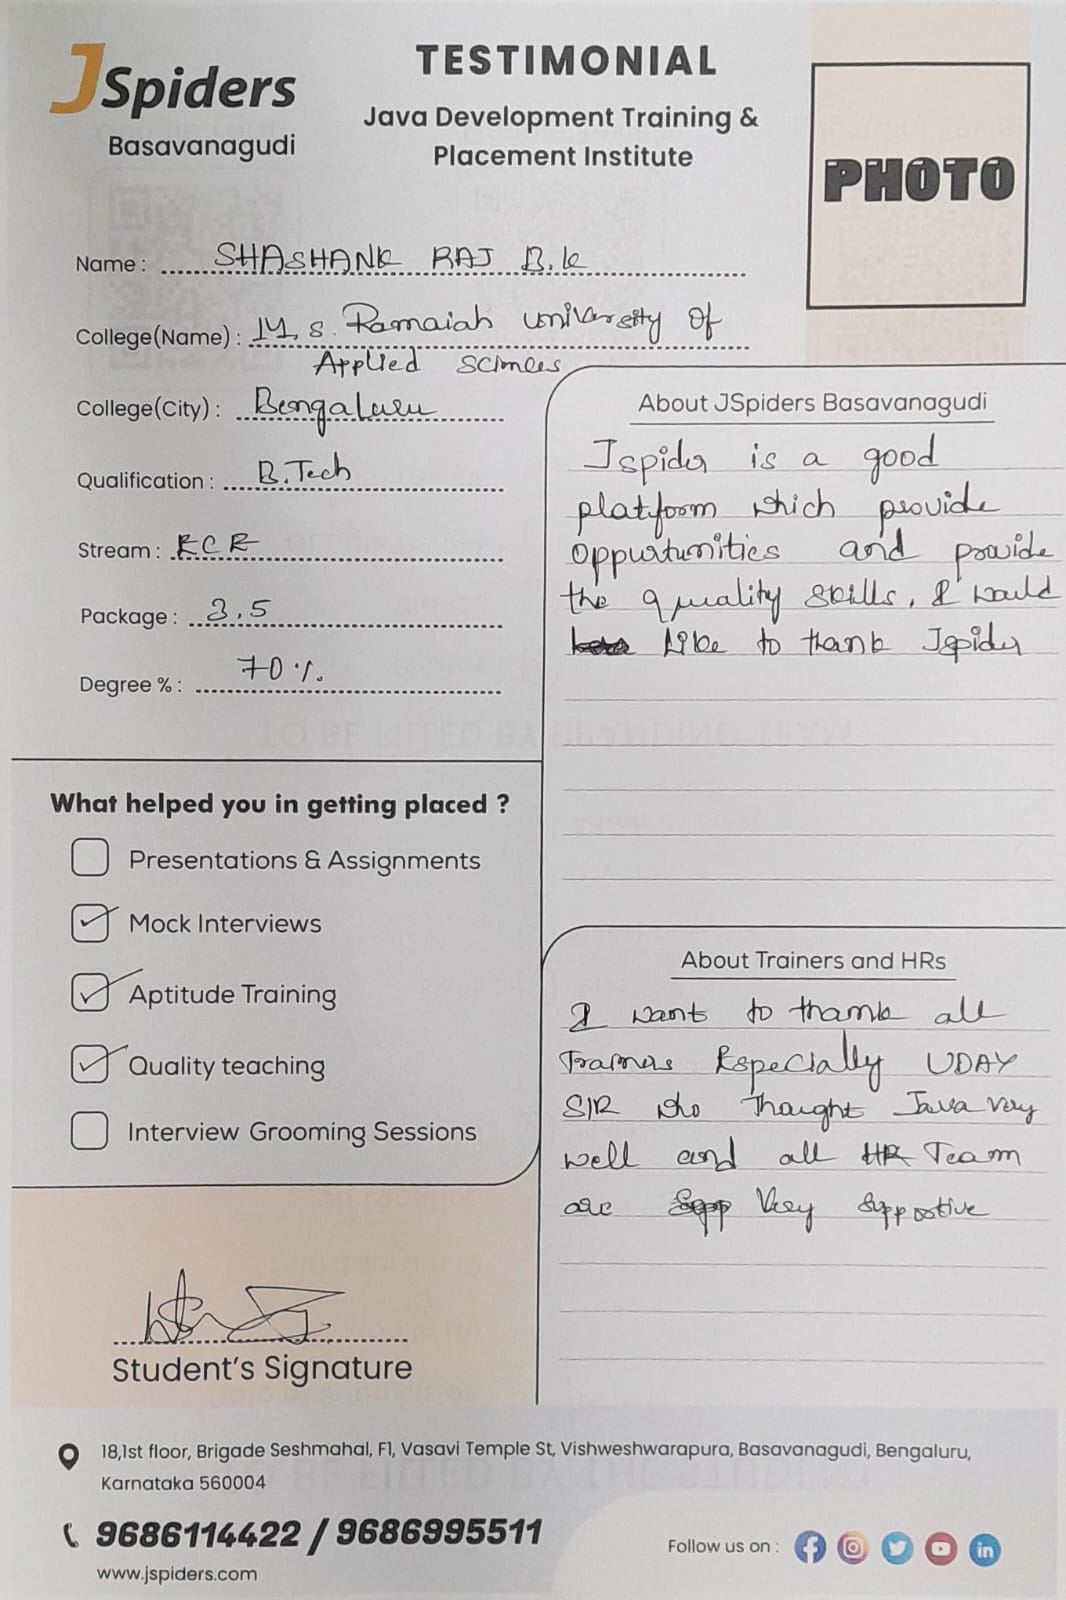 JSpiders
Basavanagudi
TESTIMONIAL
Java Development Training &
Placement Institute
PHOTO
Name : SHASHANK RAJ B.K
College(Name) : M. S. Ramaiah University Of
Applied Sciences
College(City) : Bengaluru
Qualification : B.Tech
Stream : ECE
Package : 3.5
Degree % : 70%.
About JSpiders Basavanagudi
Jspider is a good
platform which provide
oppurtunities and provide
the quality skills, I would
Like to thank Jspider
What helped you in getting placed ?
Presentations & Assignments
Mock Interviews
Aptitude Training
Quality teaching
Interview Grooming Sessions
About Trainers and HRs
I want to thank all
Trainers Especially UDAY
SIR who Thaught Java very
well and all HR Team
are Very Supportive
Student's Signature
18,1st floor, Brigade Seshmahal, F1, Vasavi Temple St, Vishweshwarapura, Basavanagudi, Bengaluru,
Karnataka 560004
9686114422 / 9686995511
www.jspiders.com
Follow us on :